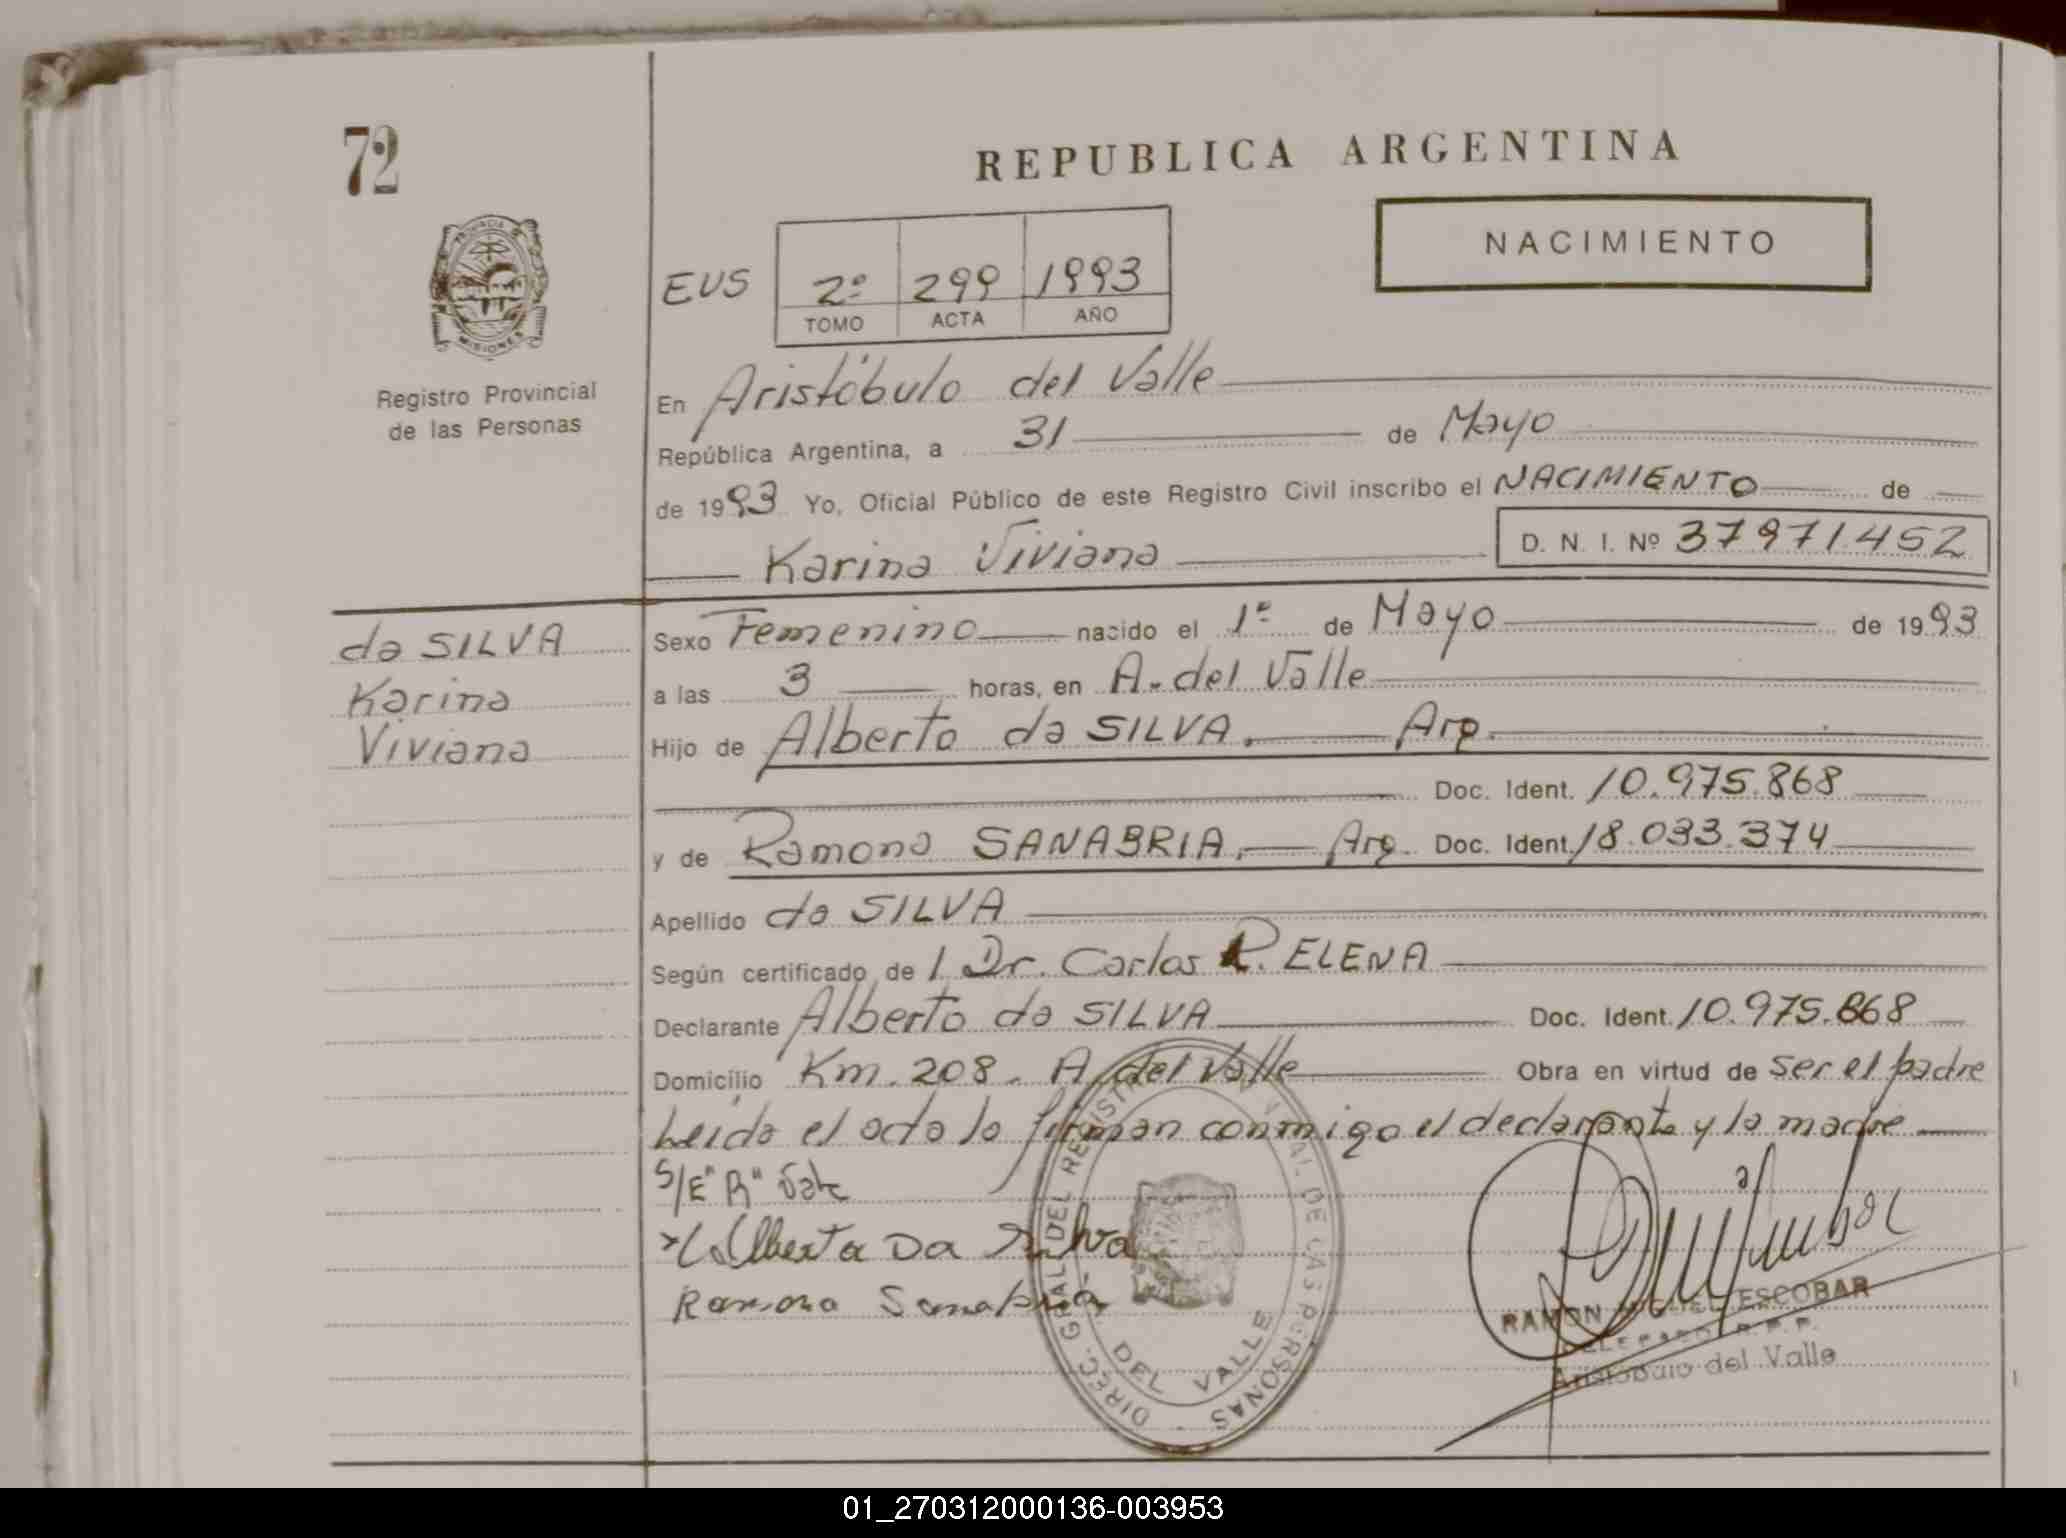 72
REPUBLICA ARGENTINA
NACIMIENTO
EUS 2º 299 1993
TOMO ACTA AÑO
PROVINCIA DE MISIONES
Registro Provincial
de las Personas
En Aristóbulo del Valle
República Argentina, a 31 de Mayo
de 1993 Yo, Oficial Público de este Registro Civil inscribo el NACIMIENTO de
Karina Viviana D. N. I. Nº 37971452
da SILVA
Karina
Viviana
Sexo Femenino nacido el 1º de Mayo de 1993
a las 3 horas, en A. del Valle
Hijo de Alberto da SILVA. Arg.
Doc. Ident. 10.975.868
y de Ramona SANABRIA. Arg. Doc. Ident. 18.033.374
Apellido da SILVA
Según certificado de l Dr. Carlos R. ELENA
Declarante Alberto da SILVA Doc. Ident. 10.975.868
Domicilio Km. 208. A. del Valle Obra en virtud de ser el padre
Leida el acta la firman conmigo el declarante y la madre
S/E "R" Vale
Alberto Da Silva
Ramona Sanabria
DIREC. GRAL. DEL REGISTRO DE LAS PERSONAS
DEL VALLE
RAMON MIGUEL ESCOBAR
Aristóbulo del Valle
01_270312000136-003953